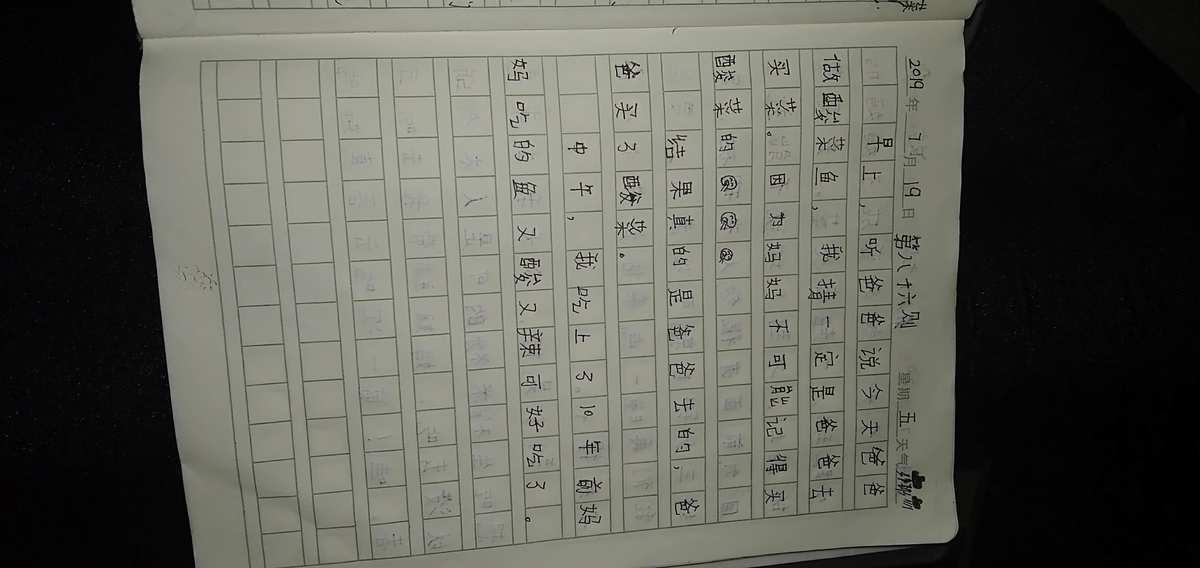 2019年7月19日 第八十六则 星期五 天气
早上,听爸爸说今天爸爸
做酸菜鱼,我猜一定是爸爸去
买菜。因为妈妈不可能记得买
酸菜的
结果真的是爸爸去的,爸
爸买了酸菜。
中午,我吃上了10年前妈
妈吃的鱼又酸又辣可好吃了。